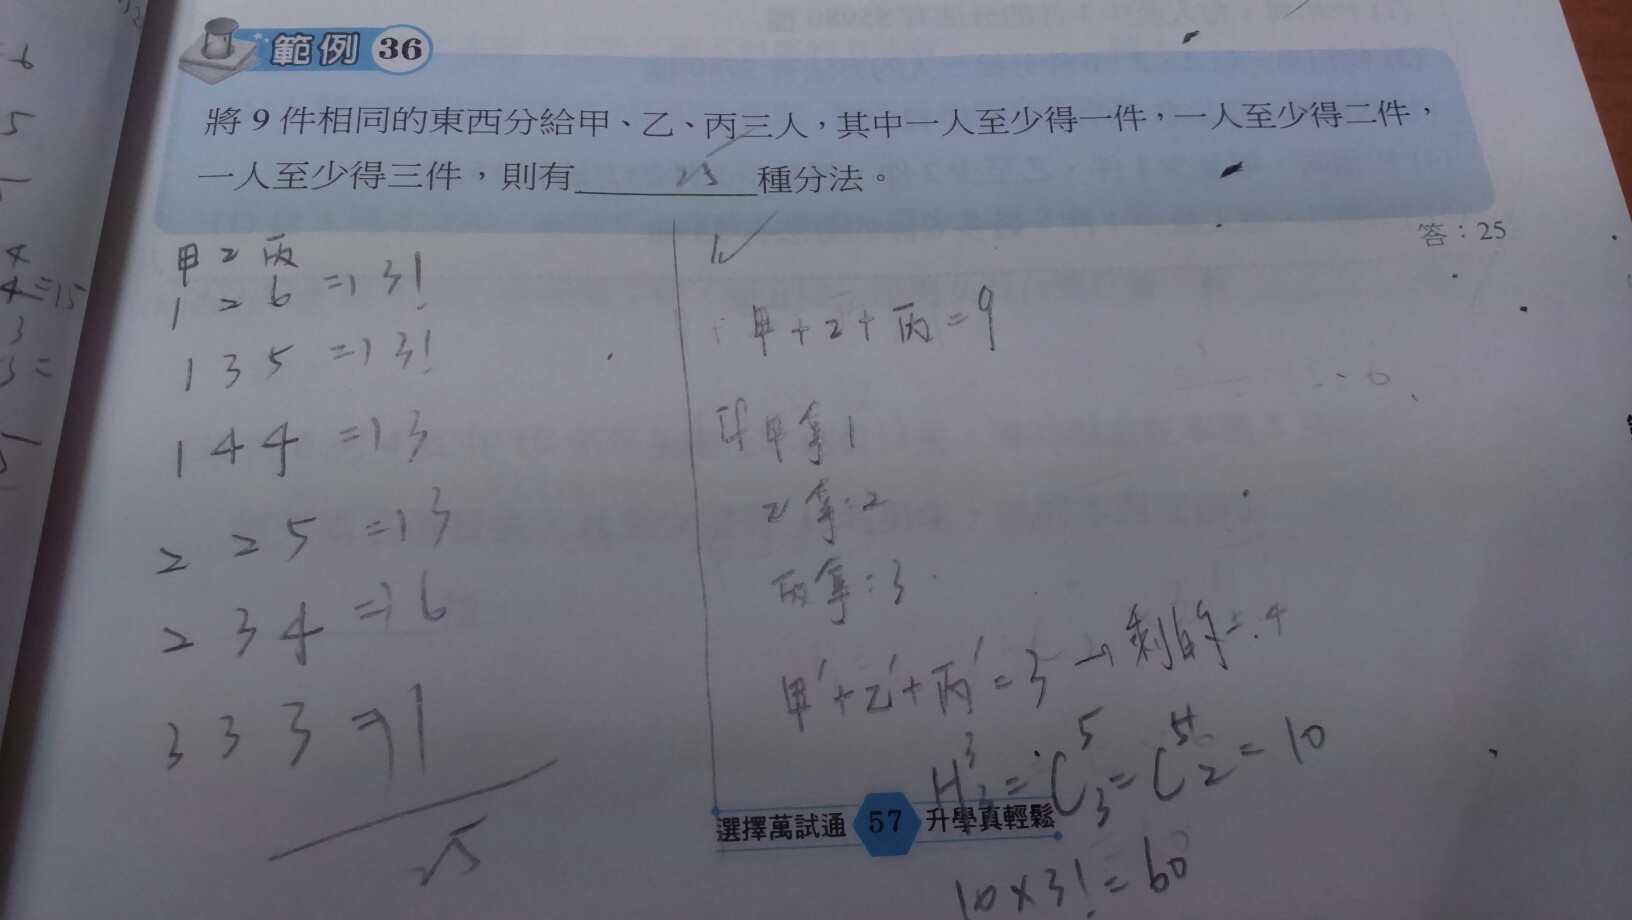 範例 36
將 9 件相同的東西分給甲、乙、丙三人，其中一人至少得一件，一人至少得二件，
一人至少得三件，則有 25 種分法。
答：25
甲 乙 丙
1 2 6 => 3!
1 3 5 => 3!
1 4 4 => 3
2 2 5 => 3
2 3 4 => 6
3 3 3 => 1
25
甲+乙+丙=9
甲拿1
乙拿:2
丙拿:3
甲'+乙'+丙'=3 → 剩的
H³₃=C⁵₃=C⁵₂=10
10×3!=60
選擇萬試通 57 升學真輕鬆
6
5
4
4=15
3
3=